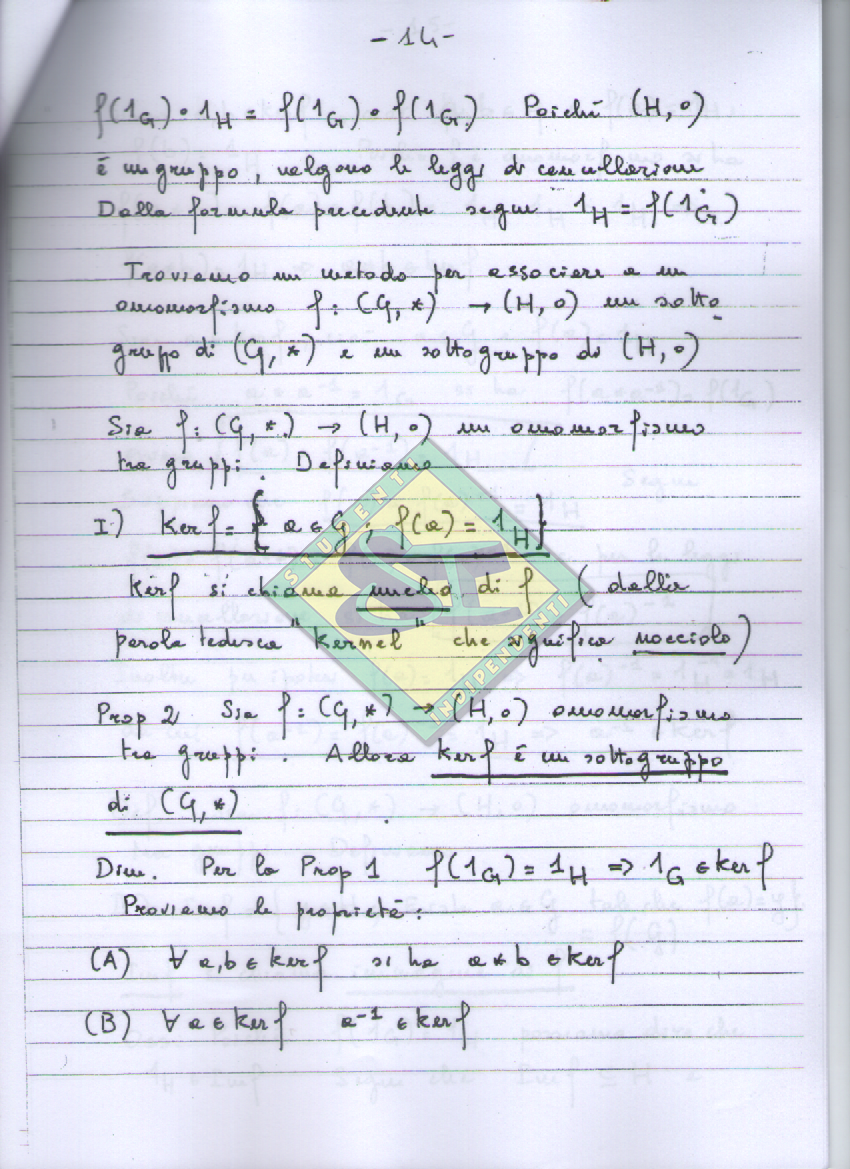 - 14 -
f(1_G) ∘ 1_H = f(1_G) ∘ f(1_G) Poiché (H, ∘)
è un gruppo, valgono le leggi di cancellazione
Dalla formula precedente segue 1_H = f(1_G)
Troviamo un metodo per associare a un
omomorfismo f: (G, *) → (H, ∘) un sotto
gruppo di (G, *) e un sottogruppo di (H, ∘)
Sia f: (G, *) → (H, ∘) un omomorfismo
tra gruppi. Definiamo
I°) Ker f = { a ∈ G ; f(a) = 1_H }
Ker f si chiama nucleo di f (dalla
parola tedesca "Kernel" che significa nocciolo)
Prop 2 Sia f: (G, *) → (H, ∘) omomorfismo
tra gruppi. Allora Ker f è un sottogruppo
di (G, *)
Dim. Per la Prop 1 f(1_G) = 1_H => 1_G ∈ ker f
Proviamo le proprietà:
(A) ∀ a, b ∈ ker f si ha a * b ∈ ker f
(B) ∀ a ∈ ker f a⁻¹ ∈ ker f
STUDENTI
INDIPENDENTI